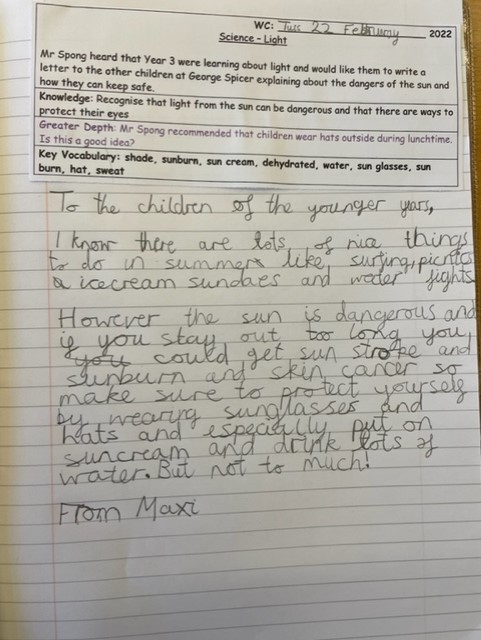 WC: Tue 22 February 2022
Science - Light
Mr Spong heard that Year 3 were learning about light and would like them to write a
letter to the other children at George Spicer explaining about the dangers of the sun and
how they can keep safe.
Knowledge: Recognise that light from the sun can be dangerous and that there are ways to
protect their eyes
Greater Depth: Mr Spong recommended that children wear hats outside during lunchtime.
Is this a good idea?
Key Vocabulary: shade, sunburn, sun cream, dehydrated, water, sun glasses, sun
burn, hat, sweat
To the children of the younger years,
I know there are lots of nice things
to do in summer like, surfing, picnics
a icecream sundaes and water fights
However the sun is dangerous and
if you stay out too long you,
you could get sun stroke and
sunburn and skin cancer so
make sure to protect yourself
by wearing sunglasses and
hats and especially put on
suncream and drink lots of
water. But not to much!
From Maxi